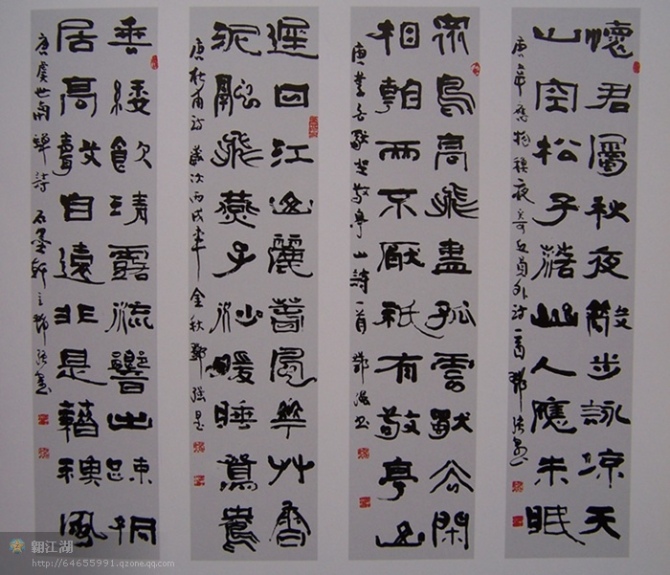 懷君屬秋夜散步詠涼天
山空松子落幽人應未眠
唐韋應物秋夜寄丘員外詩一首 鄧強書
眾鳥高飛盡孤雲獨去閑
相看兩不厭祇有敬亭山
唐李白獨坐敬亭山詩一首 鄧強書
遲日江山麗春風花草香
泥融飛燕子沙暖睡鴛鴦
唐杜甫詩 歲次丙戌年金秋鄧強
垂緌飲清露流響出疏桐
居高聲自遠非是藉秋風
唐虞世南蟬詩 石墨軒主鄧強書
江湖
http://64655991.qzone.qq.com